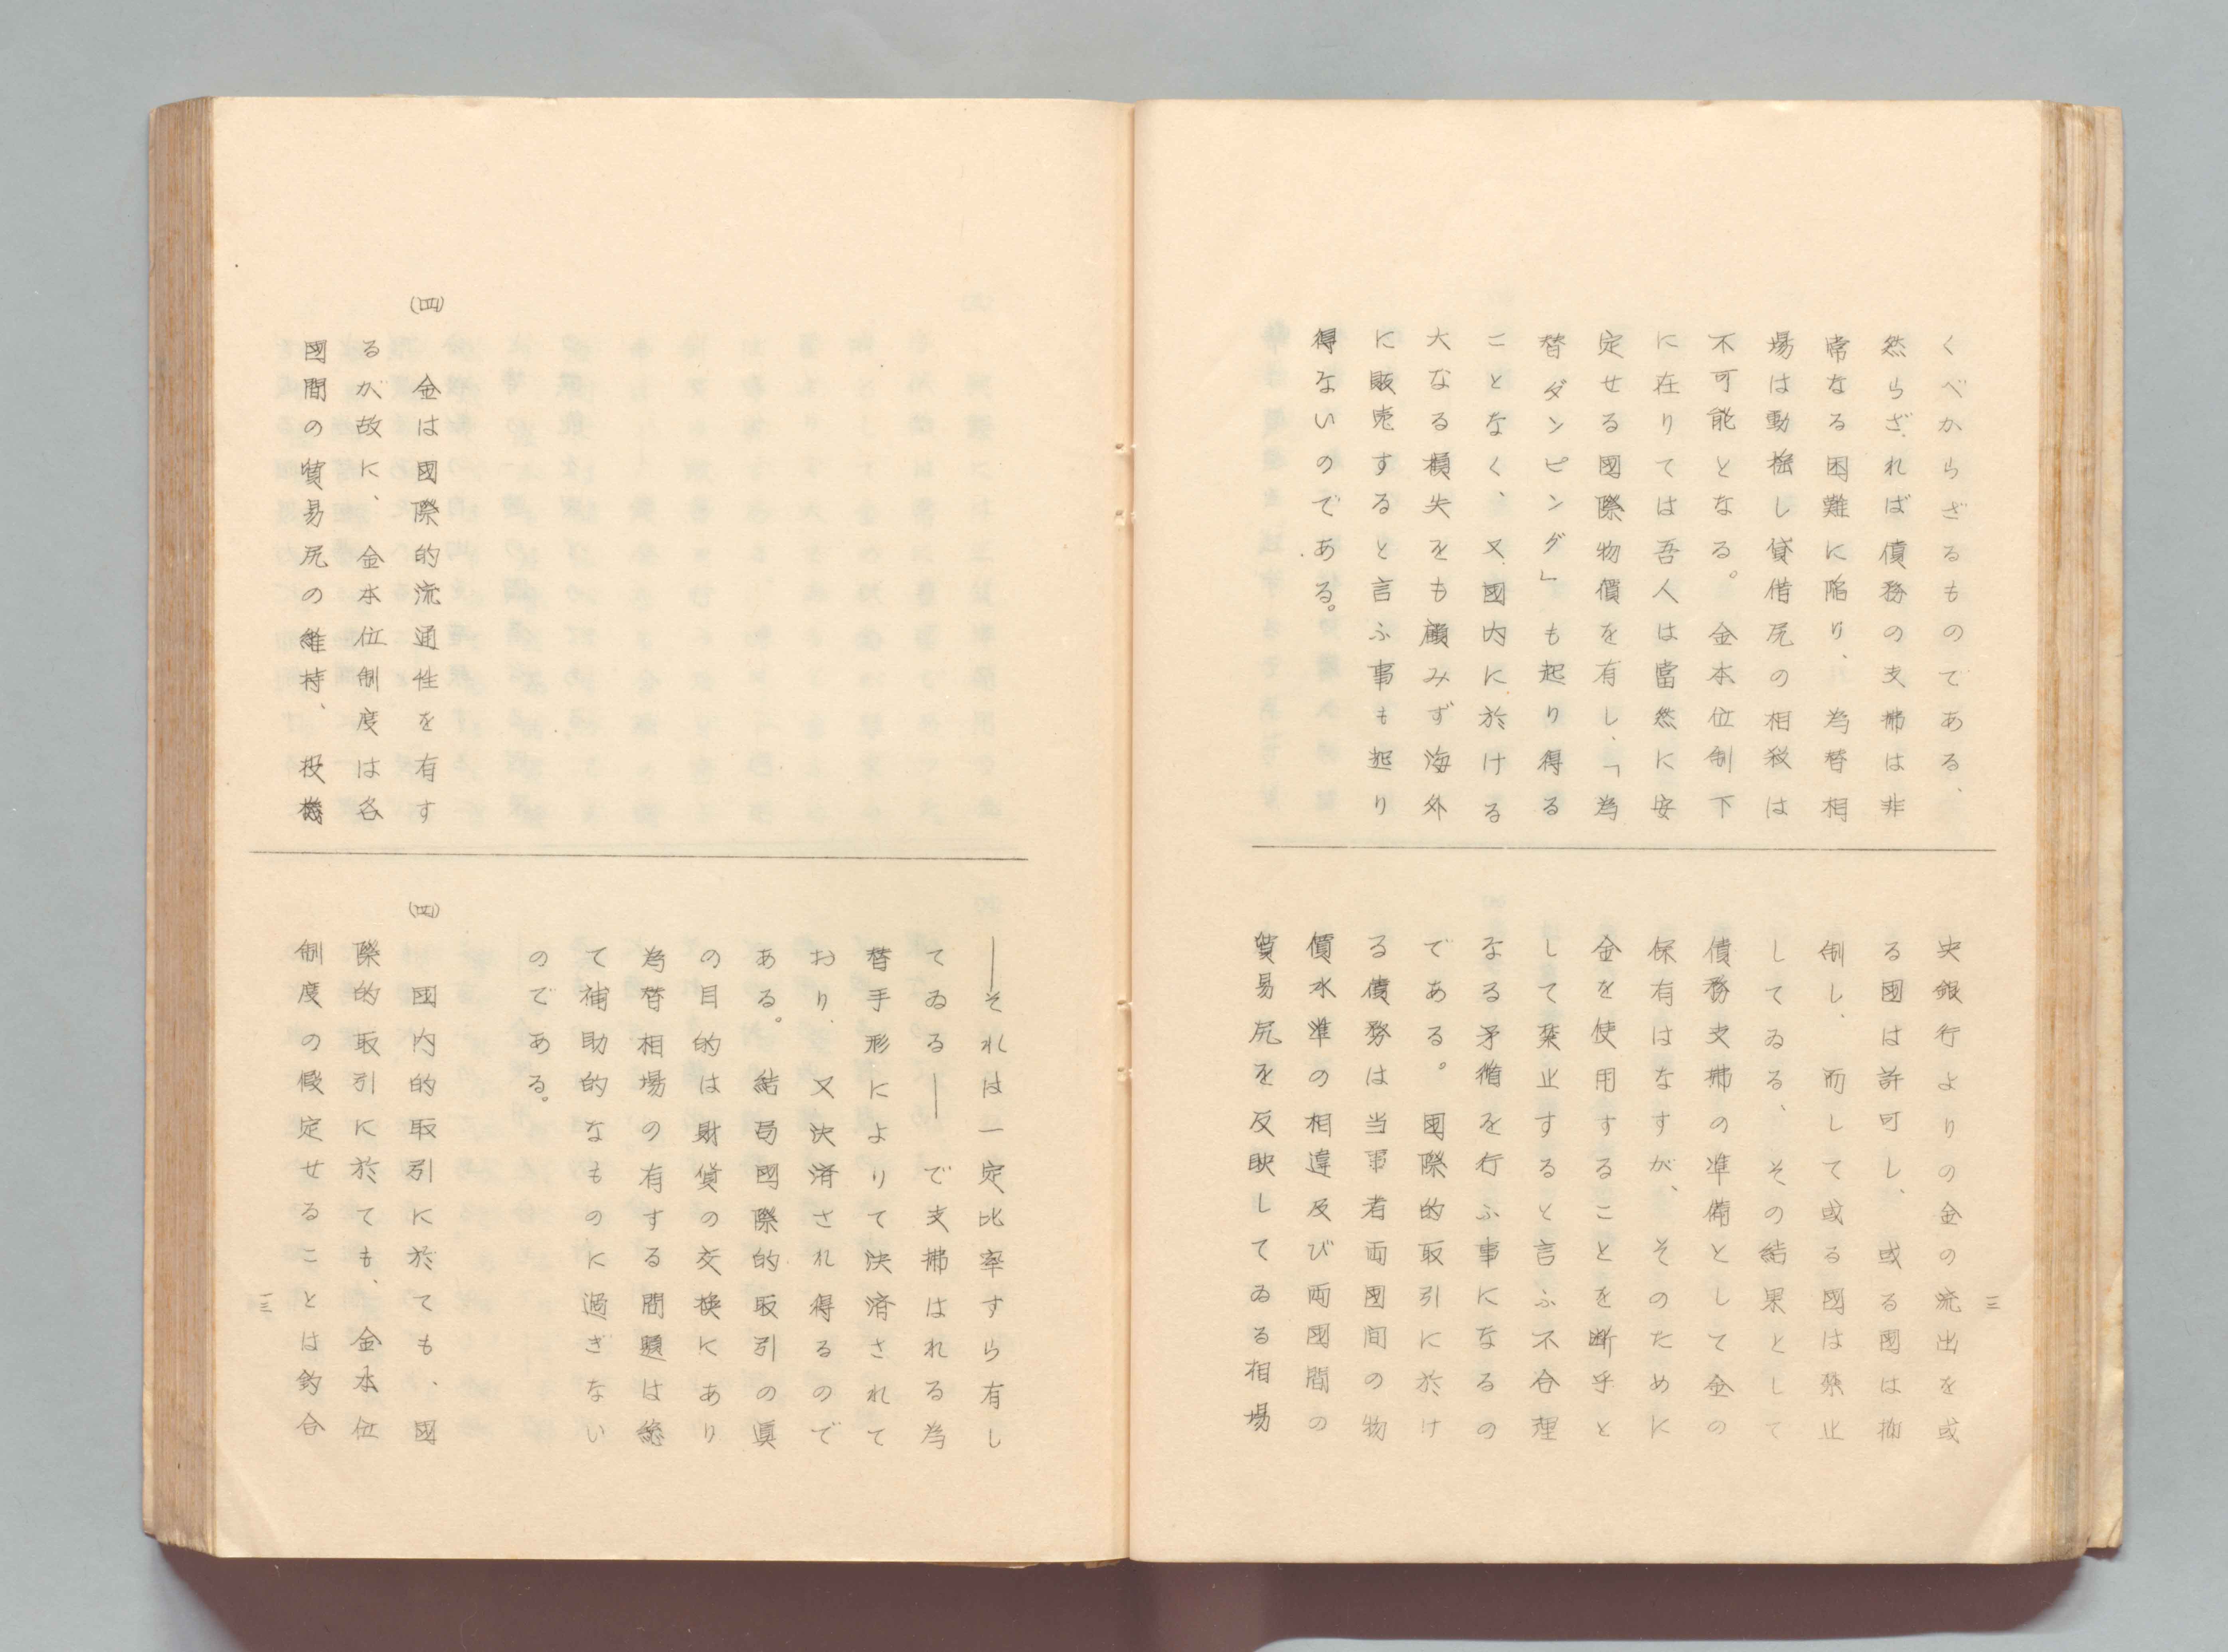 くべからざるものである、
然らざれば債務の支拂は非
常なる困難に陥り、為替相
場は動揺し貸借尻の相殺は
不可能となる。金本位制下
に在りては吾人は當然に安
定せる國際物價を有し、「為
替ダンピング」も起り得る
ことなく、又國内に於ける
大なる損失をも顧みず海外
に販売すると言ふ事も起り
得ないのである。
央銀行よりの金の流出を或
る國は許可し、或る國は抑
制し、而して或る國は禁止
してゐる、その結果として
債務支拂の準備として金の
保有はなすが、そのために
金を使用することを断乎と
して禁止すると言ふ不合理
なる矛循を行ふ事になるの
である。國際的取引に於け
る債務は当事者両國间の物
價水準の相違及び両國間の
貿易尻を反映してゐる相場
三
(四)
金は國際的流通性を有す
るが故に、金本位制度は各
國間の貿易尻の維持、投機
――それは一定比率すら有し
てゐる――で支拂はれる為
替手形によりて決済されて
おり、又決済され得るので
ある。結局國際的取引の眞
の目的は財貨の交換にあり
為替相場の有する問題は総
て補助的なものに過ぎない
のである。
(四)
國内的取引に於ても、國
際的取引に於ても、金本位
制度の假定せることは釣合
一三